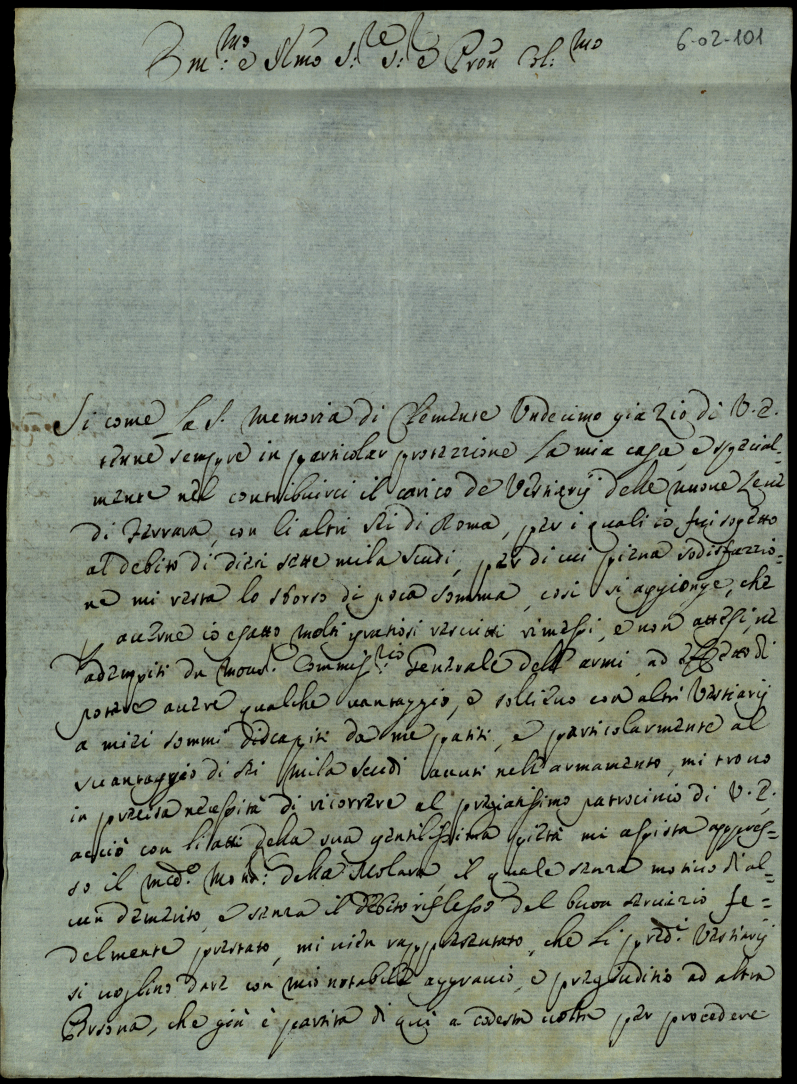 6-02-101
Em:mo e Ilmo S:re S:e Pron Il:mo
Si come la S. memoria di Clemente Undecimo gia Zio di V. E.
tenne sempre in particolar protezzione la mia casa, e special-
mente nel contribuirci il carico de Vestiarij delle nuove leve
di Ferrara, con li altri Sei di Roma, per i quali io fui sogetto
al debito di dieci sette mila scudi, per di cui piena sodisfazzio=
ne mi resta lo sborso di poca somma, così si aggionge, che
avere io esatto molti gratiosi rescritti rimessi, e non attesi, ne
adempiti da mons:r Commiss:rio Generale dell'armi, ad effetto di
potere avere qualche vantaggio, e sollievo con altri Vestiarij
a miei sommi discapiti da me patiti, e particolarmente al
svantaggio di Sei mila scudi avuti nell'armamento, mi trovo
in precisa necessità di ricorrere al pregiatissimo patrocinio di V. E.
acciò con li atti della sua gentilissima pietà mi assista appres=
so il med:o Mons:r della Molara, il quale senza motivo di al=
cun demerito, e senza il debito riflesso del buon servizio fe=
delmente prestato, mi vien rappresentato, che li pred:i Vestiarij
si voglino dare con mio notabile aggravio, e pregiuditio ad altra
Persona, che già è partita di quì a codesta volta per procedere